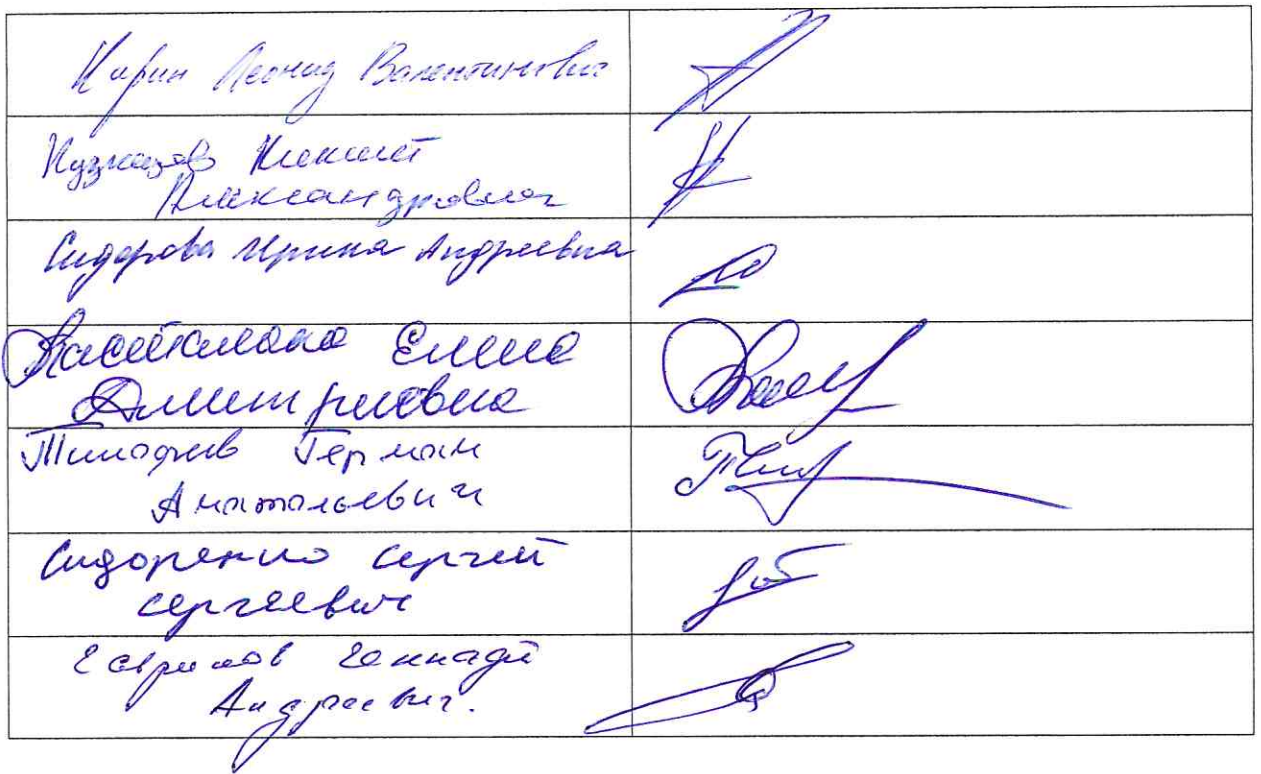 Леонид Валентинович
Кузнецов
Александрович
Сидорова Ирина Андреевна
Елена
Дмитриевна
Тимофеев Герман
Анатольевич
Сидоренко Сергей
Сергеевич
Гаврилов Геннадий
Андреевич.